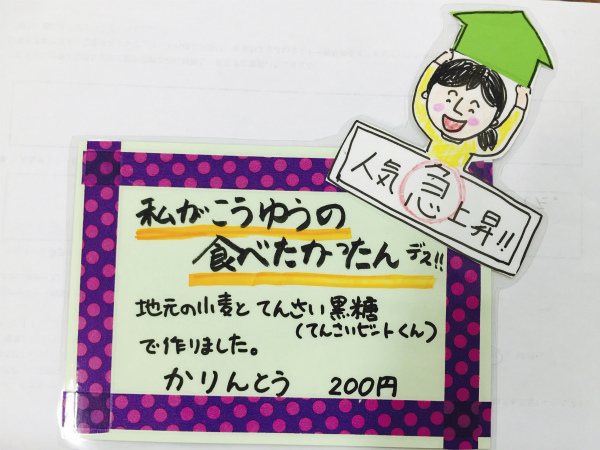 人気急上昇!!
私がこうゆうの
食べたかったんデス!!
地元の小麦とてんさい黒糖
(てんさいビントくん)
で作りました。
かりんとう 200円